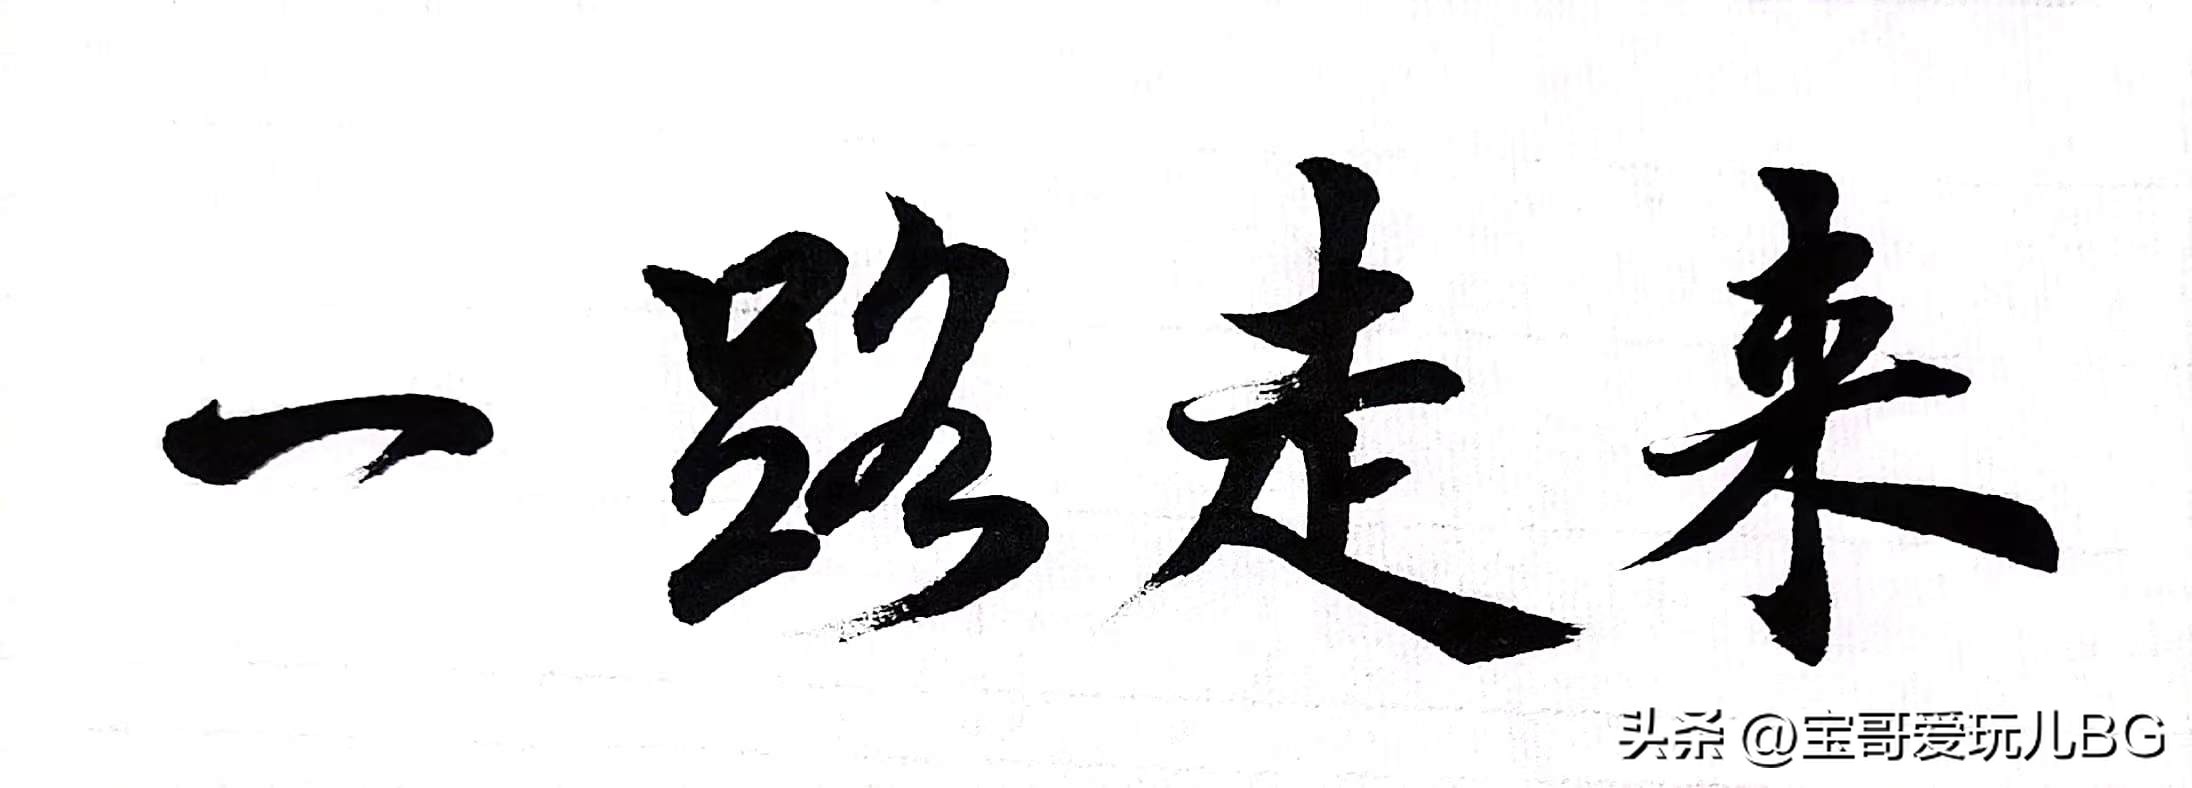 一路走来
头条 @宝哥爱玩儿BG